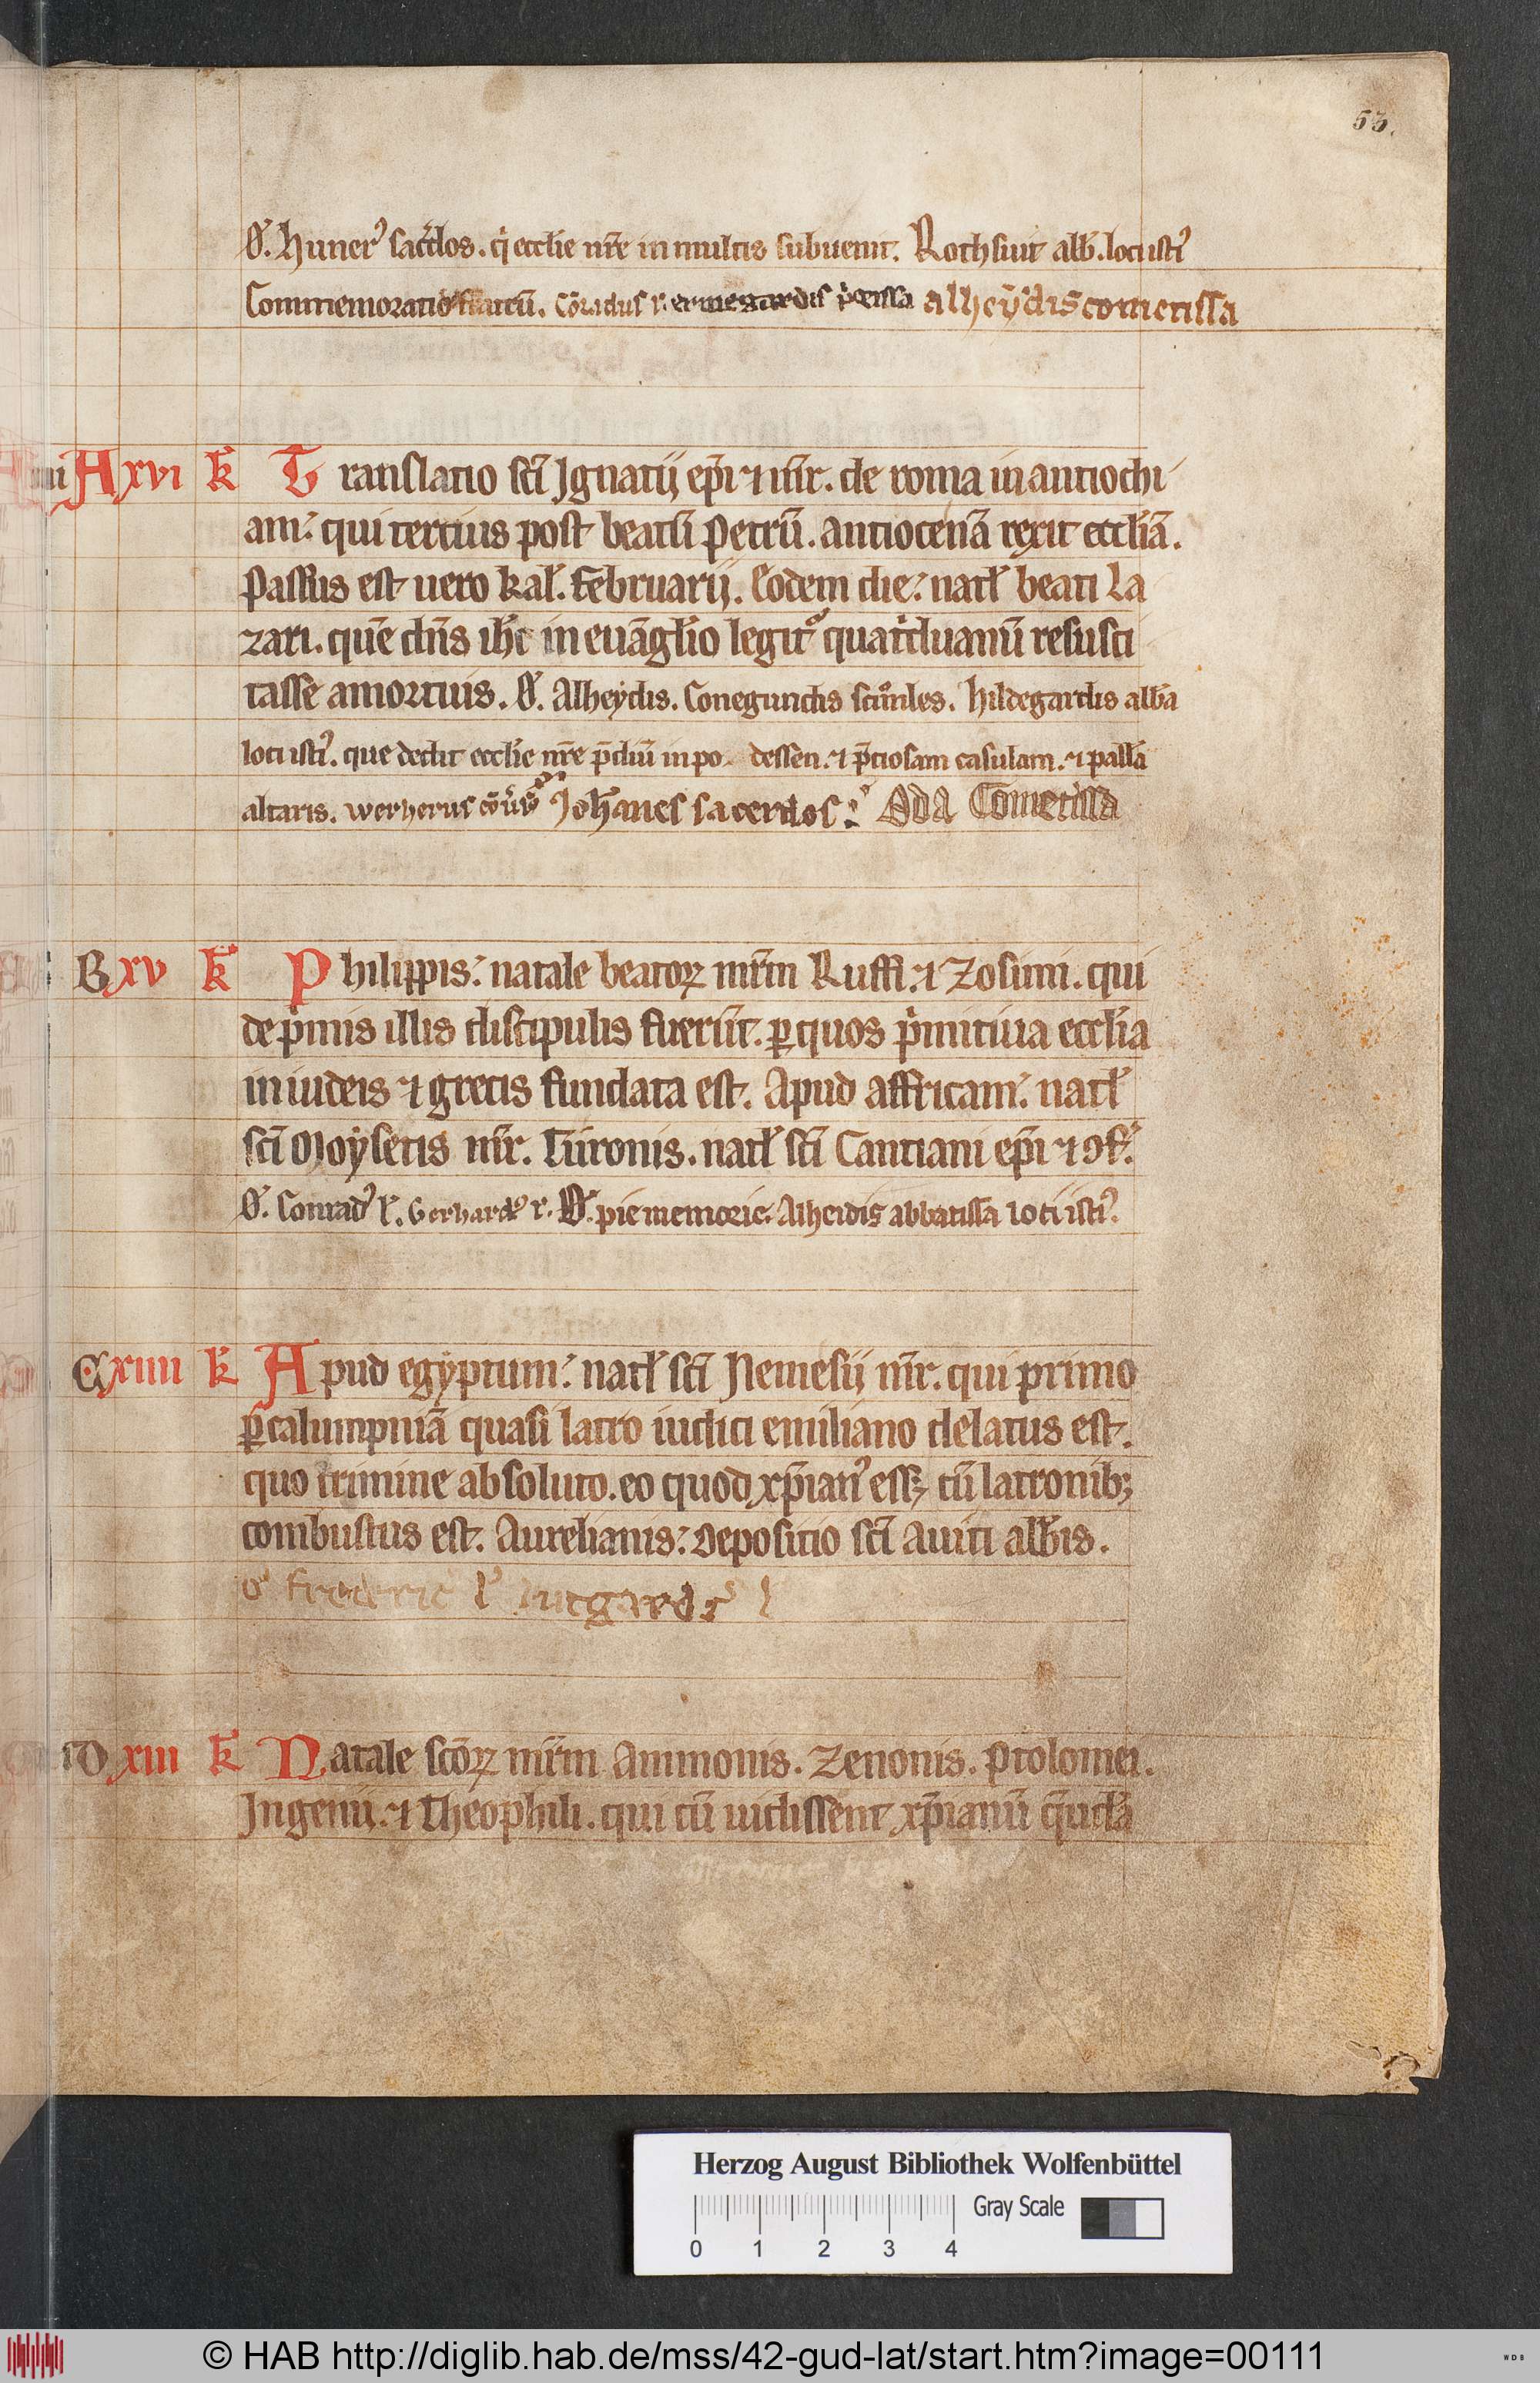 53.
Ꝋ. Hunerꝰ sac̄dos. q̇ ecclīe nr̄e in multis subuenit. Rothsuit abb̄. loci istiꝰ
Commemoratio fratrū. Cōradus l. ermegardis alheẏdis cometissa
A xvi k̄ Translatio sc̄i Ignatij ep̄i ⁊ mr̄. de roma in antiochi
am. qui tercius post beatū Petrū. antiocenā rexit eccl̄iā.
Passus est uero kal̄. Februarij. Eodem die. natł beati La
zari. quē dn̄s ih̄c in euāgl̄io legitᷣ quatͥduanū resusci
tasse amortuis. Ꝋ. Alheẏdis. Conegundis Hildegardis abb̄a
loci istiꝰ. que dedit eccl̄ie nr̄e p̄diū in po dessen. ⁊ p̄ciosam casulam. ⁊ pallā
altaris. Wernerus Joh̄anes sacerdos: Oda Cometissa
B xv k̄ Philippis. natale beatoꝝ mr̄m Ruffi. ⁊ Zosimi. qui
de pͥmis illis discipulis fuerūt. ꝑ quos pͥmitiua eccl̄ia
in iudeis ⁊ grecis fundata est. Apud affricam. natł
sc̄i Moẏsetis mr̄. Turonis. natł sc̄i Catiani ep̄i ⁊ ꝯf.
Ꝋ. Conradꝰ l. Gerhardꝰ l. Ꝋ. pie memorie. Alheidis abbatissa loci istiꝰ.
C xiiii k̄ Apud egẏptum. natł sc̄i Nemesij mr̄. qui primo
ꝑ calumpniā quasi latro iudici emiliano delatus est.
quo crimine absoluto. eo quod xp̄ianꝰ ess; cū latronib;
combustus est. Aurelianis. Depositio sc̄i Auiti abb̄is.
oꝰ frederic l lutgardꝭ l
D xiii k̄ Natale sc̄oꝝ mr̄m Ammonis. Zenonis. Ptolomei.
Ingenij. ⁊ Theophili. qui cū uidissent xp̄ianū q̄ndā
Herzog August Bibliothek Wolfenbüttel
Gray Scale
0 1 2 3 4
© HAB http://diglib.hab.de/mss/42-gud-lat/start.htm?image=00111
WDB